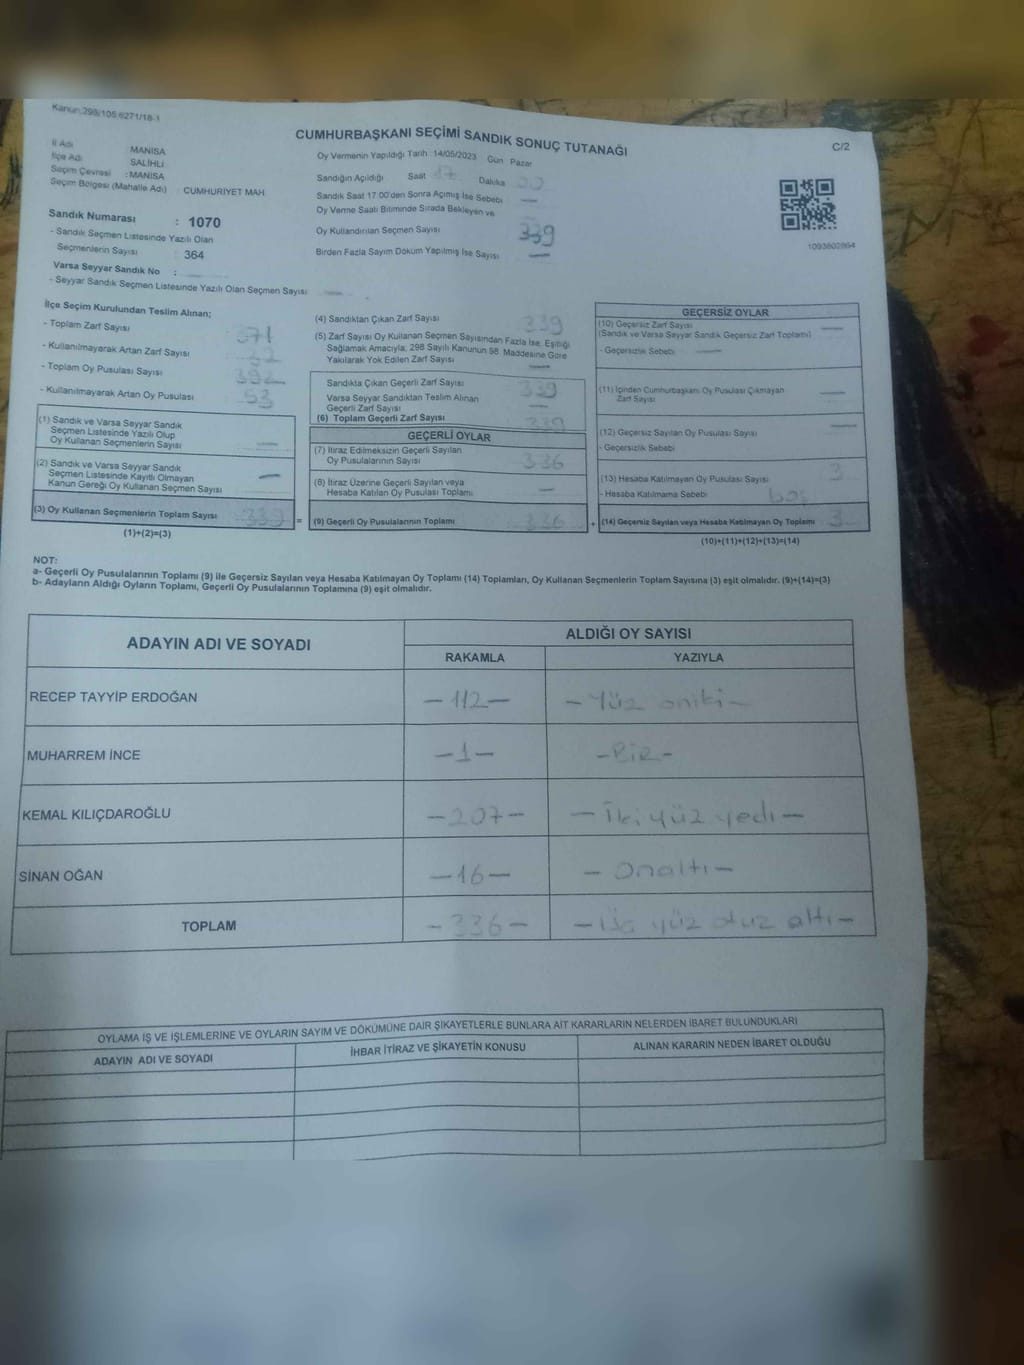 Kanun:298/105 6271/18-1
CUMHURBAŞKANI SEÇİMİ SANDIK SONUÇ TUTANAĞI
C/2
İl Adı MANISA
İlçe Adı SALİHLİ
Seçim Çevresi : MANISA
Seçim Bölgesi (Mahalle Adı) : CUMHURIYET MAH.
Sandık Numarası : 1070
- Sandık Seçmen Listesinde Yazılı Olan
Seçmenlerin Sayısı 364
Varsa Seyyar Sandık No :
- Seyyar Sandık Seçmen Listesinde Yazılı Olan Seçmen Sayısı —
Oy Vermenin Yapıldığı Tarih :14/05/2023 Gün Pazar
Sandığın Açıldığı Saat 17 Dakika
Sandık Saat 17.00'den Sonra Açımış İse Sebebi —
Oy Verme Saati Bitiminde Sırada Bekleyen ve
Oy Kullandırılan Seçmen Sayısı 339
Birden Fazla Sayım Döküm Yapılmış İse Sayısı —
1093602864
İlçe Seçim Kurulundan Teslim Alınan;
- Toplam Zarf Sayısı 371
- Kullanılmayarak Artan Zarf Sayısı
- Toplam Oy Pusulası Sayısı 392
- Kullanılmayarak Artan Oy Pusulası 53
(1) Sandık ve Varsa Seyyar Sandık
Seçmen Listesinde Yazılı Olup
Oy Kullanan Seçmenlerin Sayısı —
(2) Sandık ve Varsa Seyyar Sandık
Seçmen Listesinde Kayıtlı Olmayan
Kanun Gereği Oy Kullanan Seçmen Sayısı —
(3) Oy Kullanan Seçmenlerin Toplam Sayısı 339 =
(1)+(2)=(3)
(4) Sandıktan Çıkan Zarf Sayısı 339
(5) Zarf Sayısı Oy Kullanan Seçmen Sayısından Fazla İse, Eşitliği
Sağlamak Amacıyla, 298 Sayılı Kanunun 98. Maddesine Göre
Yakılarak Yok Edilen Zarf Sayısı —
Sandıkta Çıkan Geçerli Zarf Sayısı 339
Varsa Seyyar Sandıktan Teslim Alınan
Geçerli Zarf Sayısı —
(6) Toplam Geçerli Zarf Sayısı 339
GEÇERLİ OYLAR
(7) İtiraz Edilmeksizin Geçerli Sayılan
Oy Pusulalarının Sayısı 336
(8) İtiraz Üzerine Geçerli Sayılan veya
Hesaba Katılan Oy Pusulası Toplamı —
(9) Geçerli Oy Pusulalarının Toplamı 336 +
GEÇERSİZ OYLAR
(10) Geçersiz Zarf Sayısı —
(Sandık ve Varsa Seyyar Sandık Geçersiz Zarf Toplamı)
- Geçersizlik Sebebi —
(11) İçinden Cumhurbaşkanı Oy Pusulası Çıkmayan
Zarf Sayısı —
(12) Geçersiz Sayılan Oy Pusulası Sayısı —
- Geçersizlik Sebebi
(13) Hesaba Katılmayan Oy Pusulası Sayısı 3
- Hesaba Katılmama Sebebi boş
(14) Geçersiz Sayılan veya Hesaba Katılmayan Oy Toplamı 3
(10)+(11)+(12)+(13)=(14)
NOT:
a- Geçerli Oy Pusulalarının Toplamı (9) ile Geçersiz Sayılan veya Hesaba Katılmayan Oy Toplamı (14) Toplamları, Oy Kullanan Seçmenlerin Toplam Sayısına (3) eşit olmalıdır. (9)+(14)=(3)
b- Adayların Aldığı Oyların Toplamı, Geçerli Oy Pusulalarının Toplamına (9) eşit olmalıdır.
ADAYIN ADI VE SOYADI ALDIĞI OY SAYISI
RAKAMLA YAZIYLA
RECEP TAYYİP ERDOĞAN -112- - Yüz oniki -
MUHARREM İNCE -1- -BİR-
KEMAL KILIÇDAROĞLU -207- - İki yüz yedi -
SİNAN OĞAN -16- - Onaltı -
TOPLAM -336- - Üç yüz otuz altı -
OYLAMA İŞ VE İŞLEMLERİNE VE OYLARIN SAYIM VE DÖKÜMÜNE DAİR ŞİKAYETLERLE BUNLARA AİT KARARLARIN NELERDEN İBARET BULUNDUKLARI
ADAYIN ADI VE SOYADI İHBAR İTİRAZ VE ŞİKAYETİN KONUSU ALINAN KARARIN NEDEN İBARET OLDUĞU